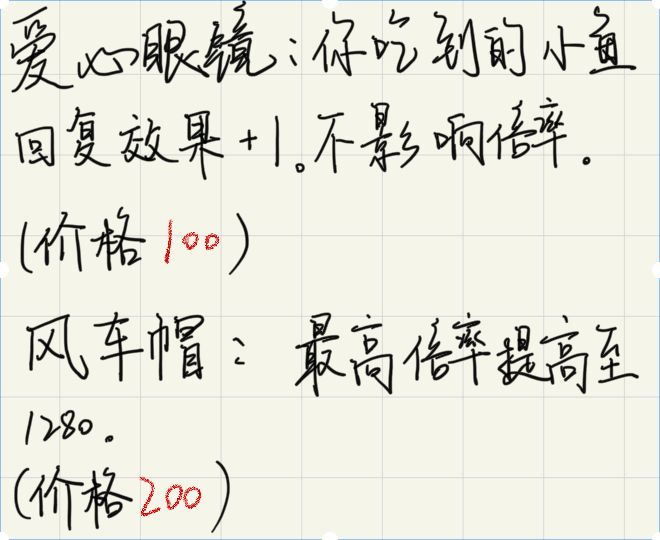 爱心眼镜：你吃到的小鱼
回复效果+1。不影响倍率。
(价格100)
风车帽：最高倍率提高至
1280。
(价格200)